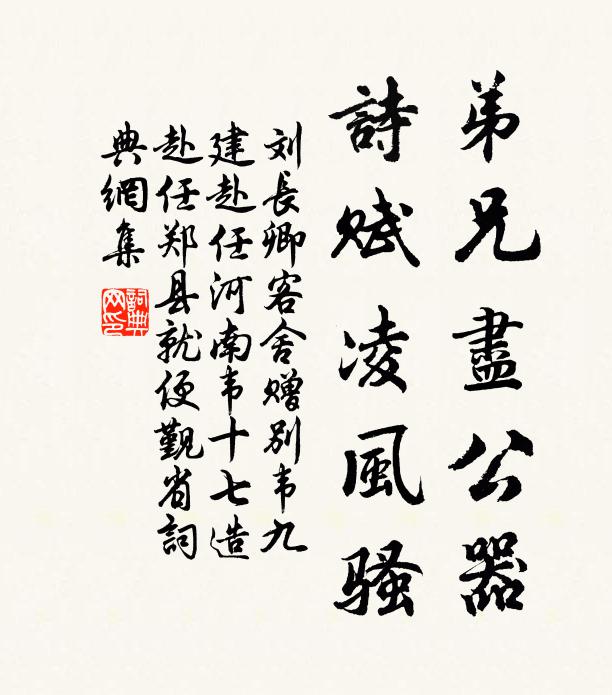 弟兄盡公器
詩賦凌風骚
刘長卿客舍赠别韦九
建赴任河南韦十七造
赴任郑县就便觐省詞
典網集
詞典
网印